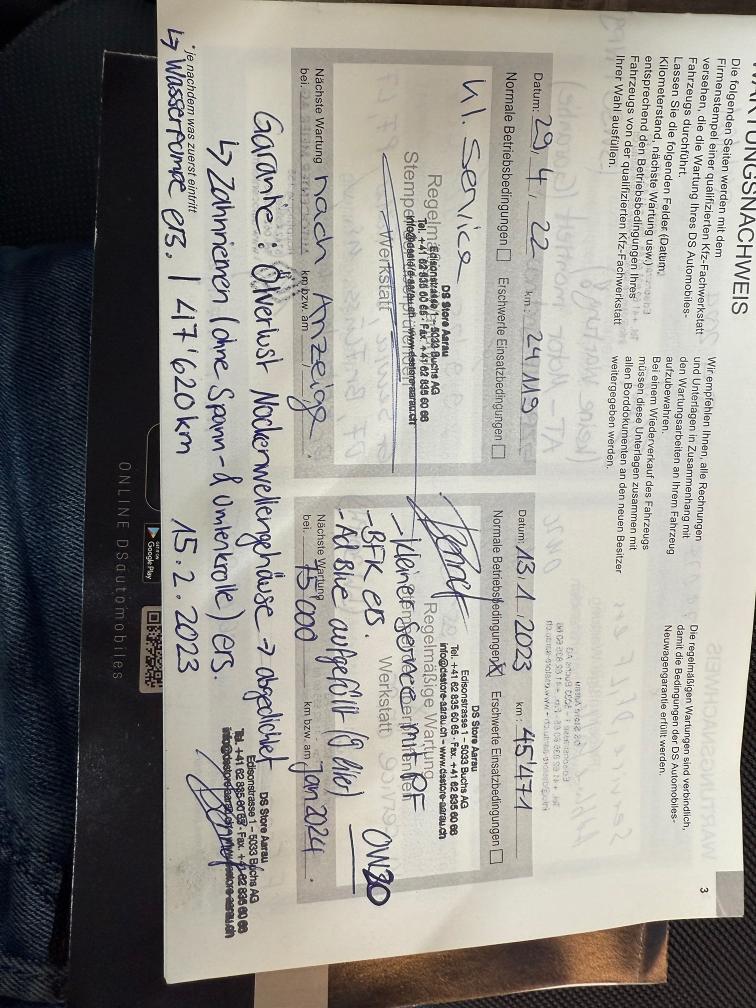 WARTUNGSNACHWEIS
Die folgenden Seiten werden mit dem
Firmenstempel einer qualifizierten Kfz-Fachwerkstatt
versehen, die die Wartung Ihres DS Automobiles-
Fahrzeugs durchführt.
Lassen Sie die folgenden Felder (Datum,
Kilometerstand, nächste Wartung usw.)
entsprechend den Betriebsbedingungen Ihres
Fahrzeugs von der qualifizierten Kfz-Fachwerkstatt
Ihrer Wahl ausfüllen.
Wir empfehlen Ihnen, alle Rechnungen
und Unterlagen in Zusammenhang mit
den Wartungsarbeiten an Ihrem Fahrzeug
aufzubewahren.
Bei einem Wiederverkauf des Fahrzeugs
müssen diese Unterlagen zusammen mit
allen Borddokumenten an den neuen Besitzer
weitergegeben werden.
Die regelmäßigen Wartungen sind verbindlich,
damit die Bedingungen der DS Automobiles-
Neuwagengarantie erfüllt werden.
3
Datum: 29, 4, 22 km: 24'119
Normale Betriebsbedingungen Erschwerte Einsatzbedingungen
kl. Service
DS Store Aarau
Edisonstrasse 1 – 5033 Buchs AG
Tel. +41 62 835 60 65 · Fax. +41 62 835 60 66
info@dsstore-aarau.ch – www.dsstore-aarau.ch
Werkstatt
Nächste Wartung
bei: nach Anzeige km bzw. am
Datum: 13, 1, 2023 km: 45'471
Normale Betriebsbedingungen Erschwerte Einsatzbedingungen
DS Store Aarau
Edisonstrasse 1 – 5033 Buchs AG
Tel. +41 62 835 60 65 · Fax. +41 62 835 60 66
info@dsstore-aarau.ch – www.dsstore-aarau.ch
Regelmäßige Wartung
- kleiner Service mit PF
- BFK ers. 0W30
Werkstatt
- Ad Blue aufgefüllt
Nächste Wartung
bei: 75'000 km bzw. am Jan 2024
Garantie: Ölverlust Nockenwellengehäuse → abgedichtet
↳ Zahnriemen (ohne Spann- & Umlenkrolle) ers.
*je nachdem was zuerst eintritt
↳ Wasserpumpe ers. | 47'620km 15.2.2023
DS Store Aarau
Edisonstrasse 1 – 5033 Buchs AG
Tel. +41 62 835 60 65 · Fax. +41 62 835 60 66
info@dsstore-aarau.ch
Google Play
ONLINE DSautomobiles